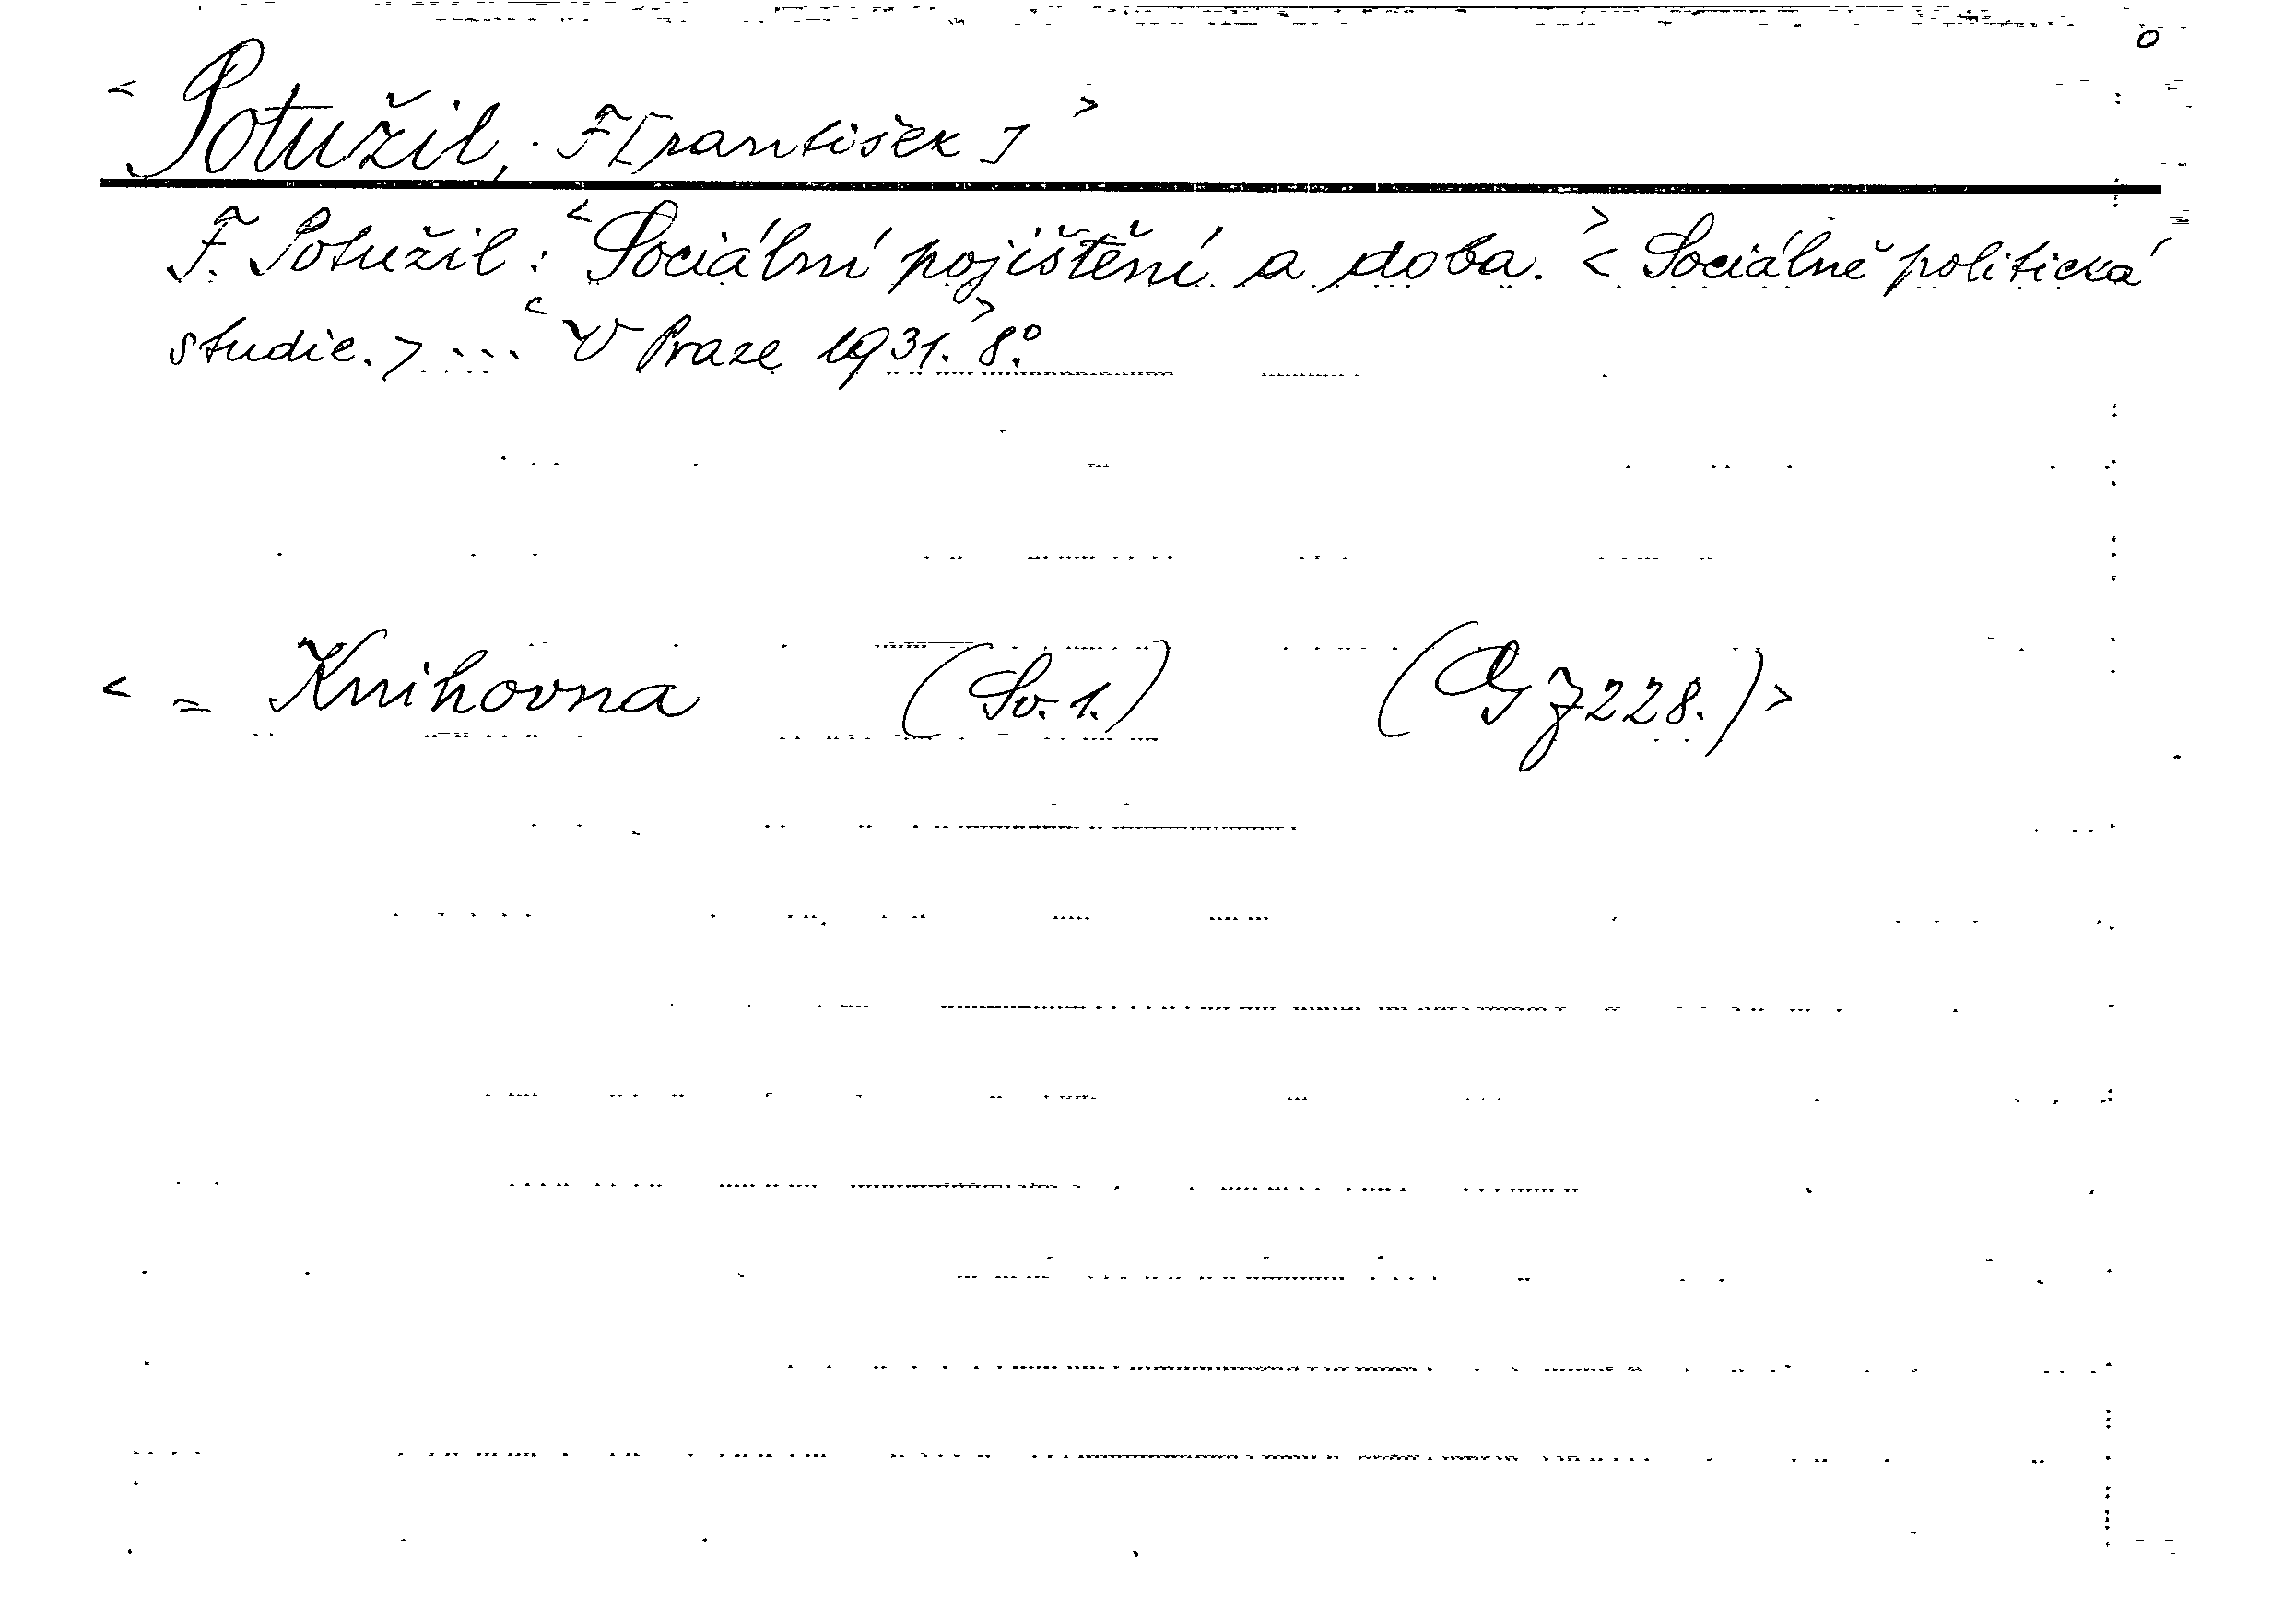 < Potužil, F[rantišek] >
F. Potužil: < Sociální pojištění a doba. > < Sociálně politická
studie. > ... < V Praze 1931. > 8°.
< = Knihovna (Sv. 1.) (G Z 228.) >